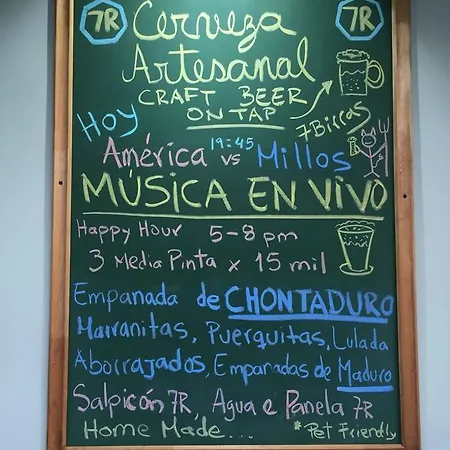 7R Cerveza 7R
Artesanal
CRAFT BEER
ON TAP
7Birras
Hoy
19:45
América vs Millos
MÚSICA EN VIVO
Happy Hour 5-8 pm
3 Media Pinta x 15 mil
Empanada de CHONTADURO
Marranitas, Puerquitas, Lulada
Aborrajados, Empanadas de Maduro
Salpicón 7R, Agua e Panela 7R
Home Made... *Pet Friendly